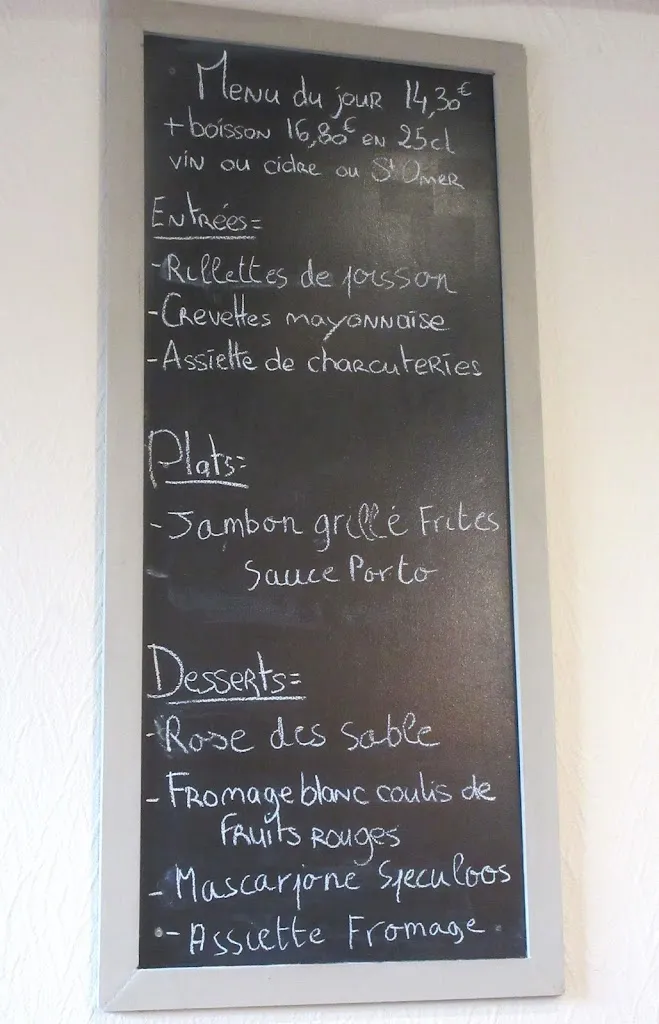 Menu du jour 14,30€
+ boisson 16,80€ en 25cl
vin ou cidre ou St Omer
Entrées=
- Rillettes de poisson
- Crevettes mayonnaise
- Assiette de charcuteries
Plats=
- Jambon grillé Frites
Sauce Porto
Desserts=
- Rose des sable
- Fromage blanc coulis de
fruits rouges
- Mascarpone Speculoos
- Assiette Fromage